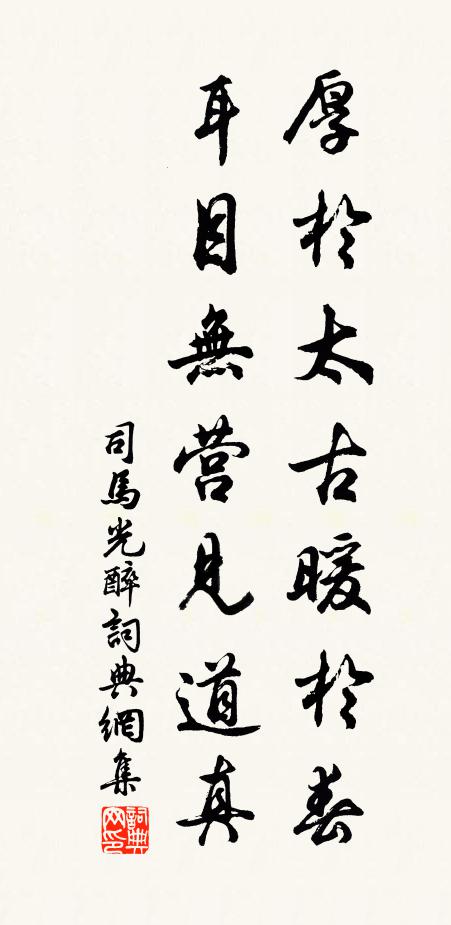 厚於太古暖於春
耳目無营見道真
司馬光醉詞典網集
詞典网印